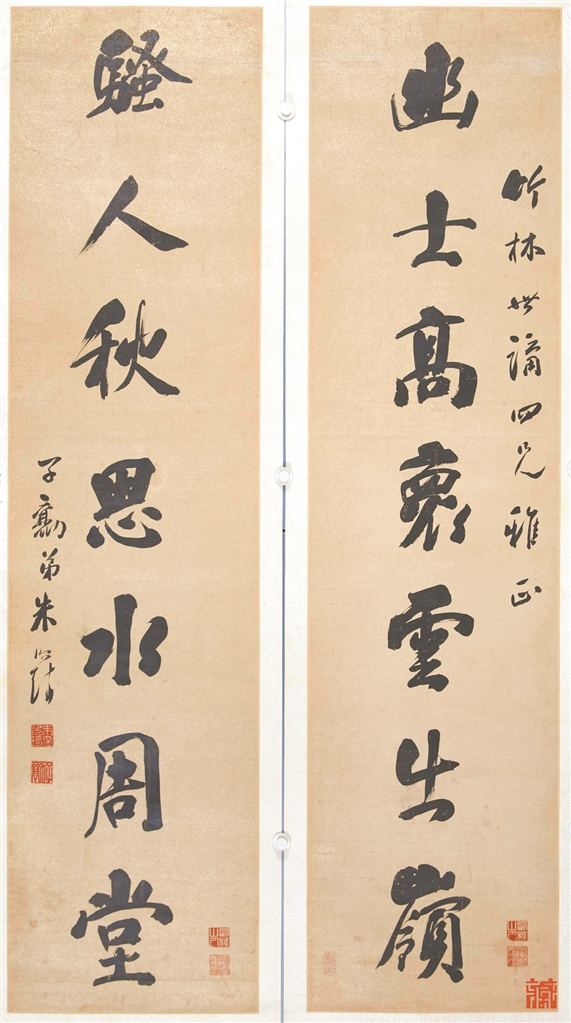 竹林世講四兄雅正
幽士高褱雲出嶺
騷人秋思水周堂
子勷弟朱